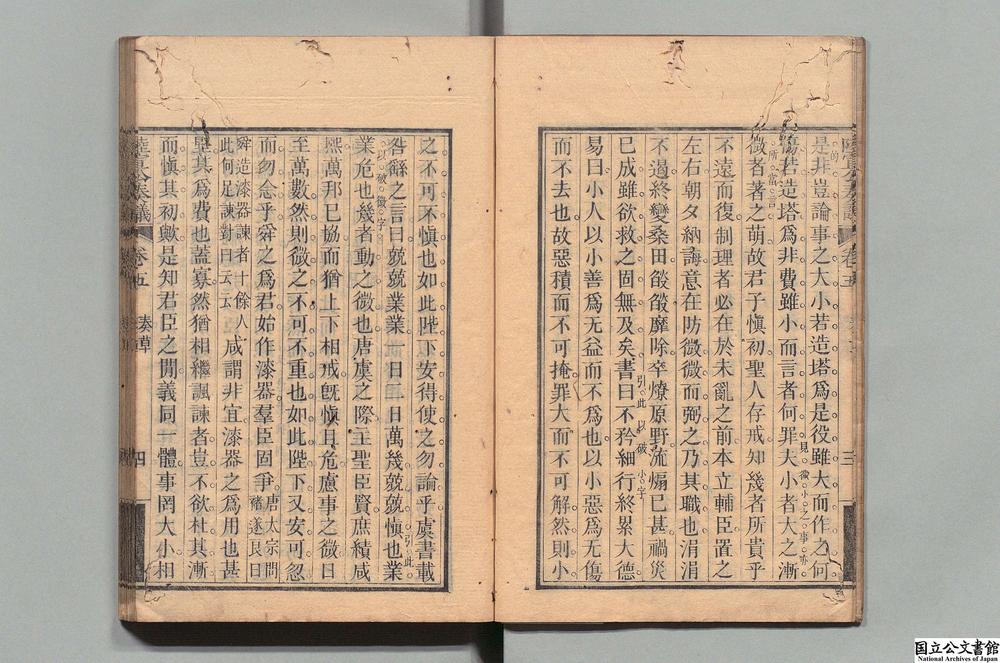 是非豈論事之大小若造塔爲是役雖大而作之何
傷若造塔爲非費雖小而言者何罪夫小者大之漸
見微小之事亦
所當言
微者著之萌故君子愼初聖人存戒知幾者所貴乎
不遠而復制理者必在於未亂之前本立輔臣置之
左右朝夕納誨意在防微微而弼之乃其職也涓涓
不遏終變桑田燄燄靡除卒燎原野流煽已甚禍災
已成雖欲救之固無及矣書曰不矜細行終累大德
引此以破小字
易曰小人以小善爲无益而不爲也以小惡爲无傷
而不去也故惡積而不可掩罪大而不可解然則小
三
之不可不愼也如此陛下安得使之勿論乎虞書載
引此
以破微字
咎繇之言曰兢兢業業一日二日萬幾兢兢愼也業
業危也幾者動之微也唐虞之際主聖臣賢庶績咸
熙萬邦已協而猶上下相戒旣愼且危慮事之微日
至萬數然則微之不可不重也如此陛下又安可忽
而勿念乎舜之爲君始作漆器羣臣固爭
唐太宗問
禇遂良曰
舜造漆器諫者十餘人
此何足諫對曰云云
咸謂非宜漆器之爲用也甚
堅其爲費也蓋寡然猶相繼諷諫者豈不欲杜其漸
而愼其初歟是知君臣之閒義同一體事罔大小相
陸宣公奏議 卷五 奏草 四
国立公文書館
National Archives of Japan